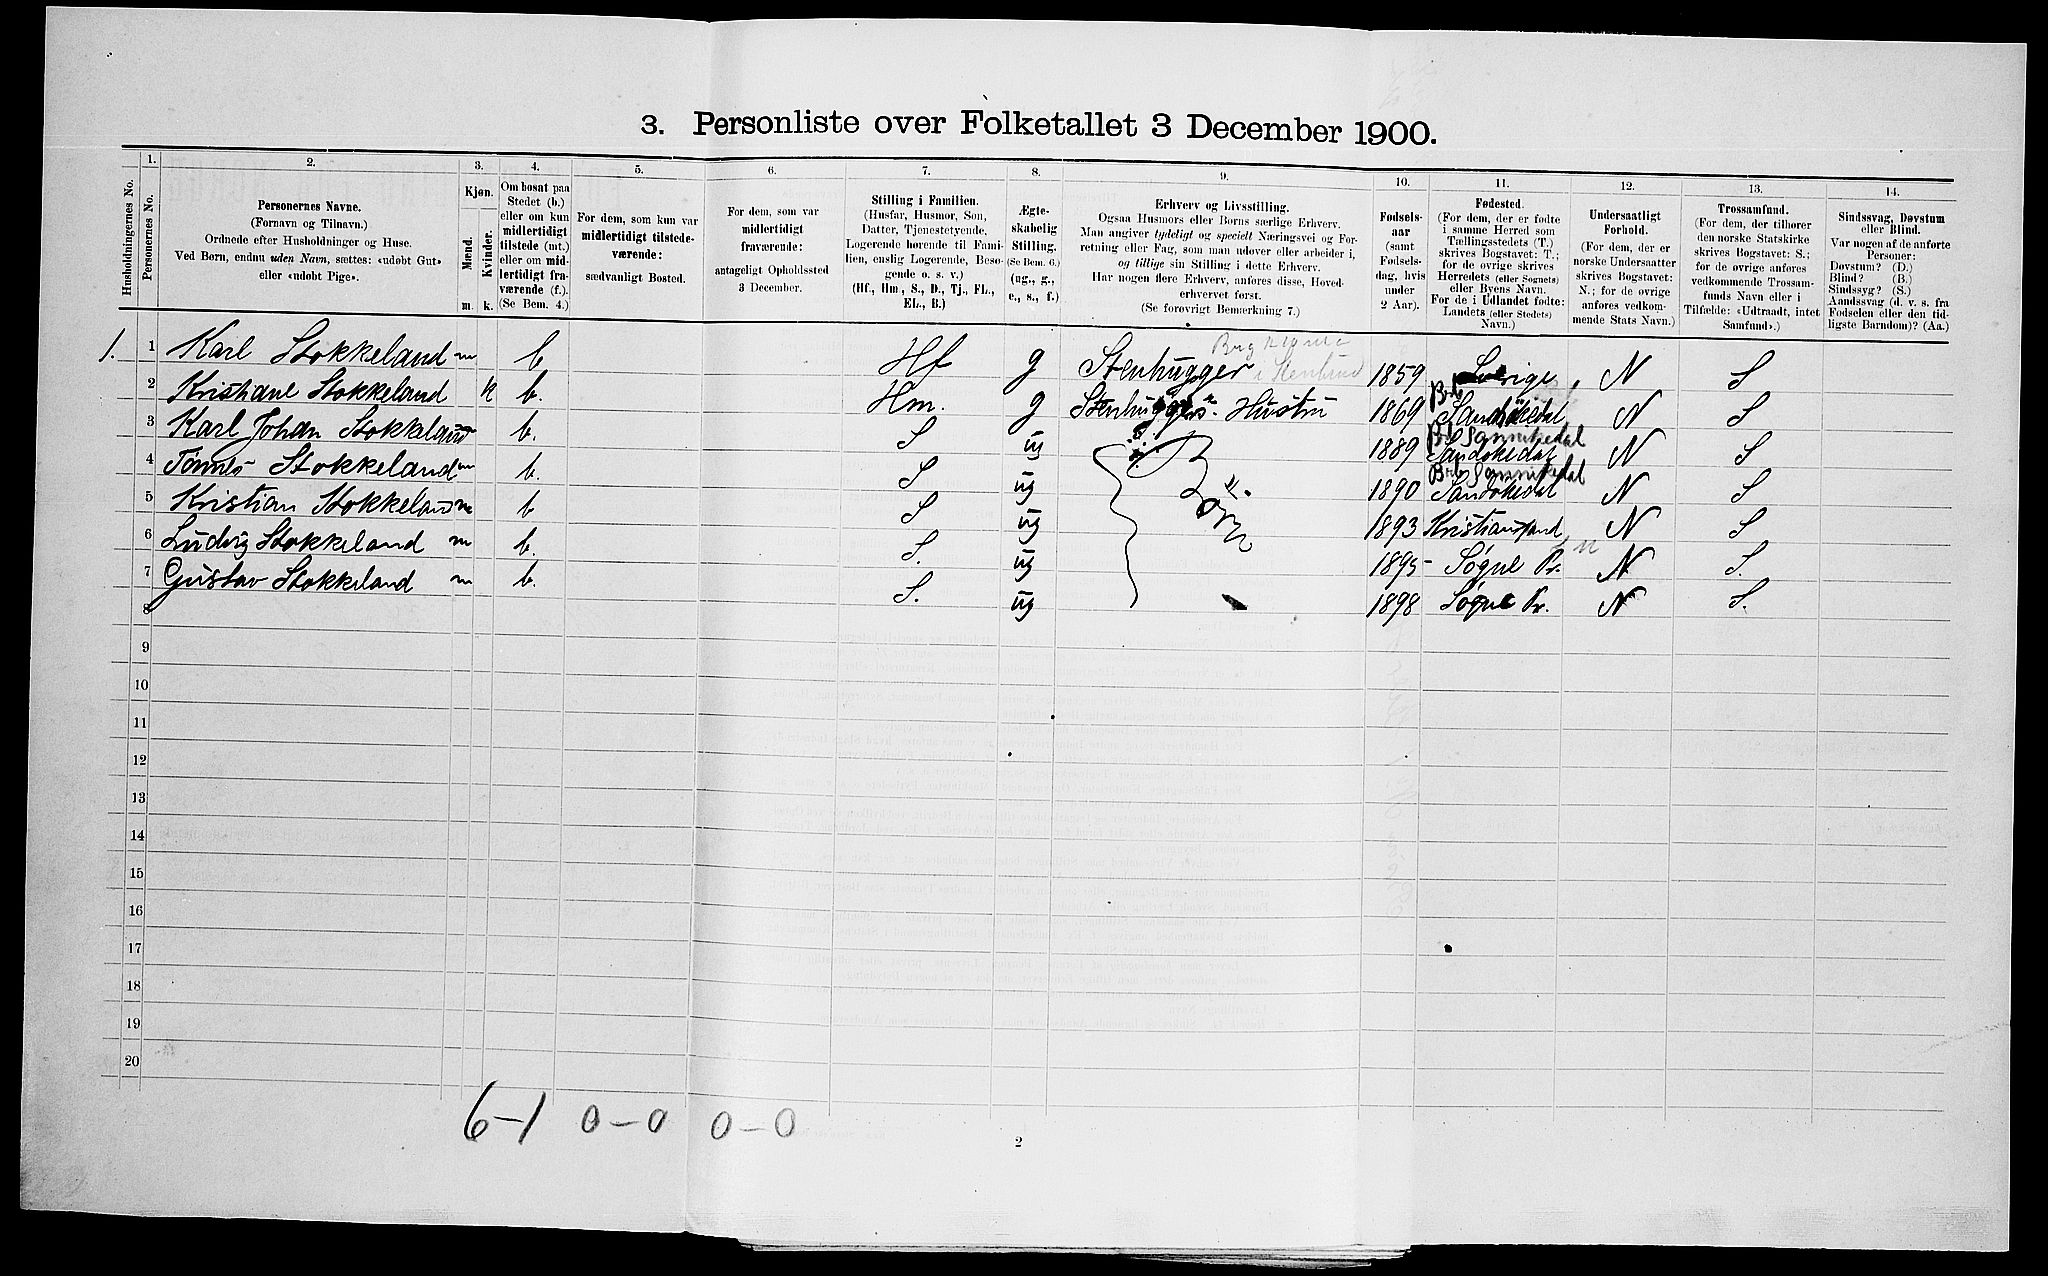 3. Personliste over Folketallet 3 December 1900.
1. 2. 3. 4. 5. 6. 7. 8. 9. 10. 11. 12. 13. 14.
Husholdningernes No.
Personernes No.
Personernes Navne.
(Fornavn og Tilnavn.)
Ordnede efter Husholdninger og Huse.
Ved Børn, endnu uden Navn, sættes: «udøbt Gut»
eller «udøbt Pige».
Kjøn.
Mænd.
Kvinder.
m. k.
Om bosat paa
Stedet (b.)
eller om kun
midlertidigt
tilstede (mt.)
eller om mid-
lertidigt fra-
værende (f.).
(Se Bem. 4.)
For dem, som kun var
midlertidigt tilstede-
værende:
sædvanligt Bosted.
For dem, som var
midlertidigt
fraværende:
antageligt Opholdssted
3 December.
Stilling i Familien.
(Husfar, Husmor, Søn,
Datter, Tjenestetyende,
Logerende hørende til Fami-
lien, enslig Logerende, Besø-
gende o. s. v.)
(Hf., Hm., S., D., Tj., FL.,
EL., B.)
Ægte-
skabelig
Stilling.
(Se Bem. 6.)
(ug., g.,
e., s., f.)
Erhverv og Livsstilling.
Ogsaa Husmors eller Børns særlige Erhverv.
Man angiver tydeligt og specielt Næringsvei og For-
retning eller Fag, som man udøver eller arbeider i,
og tillige sin Stilling i dette Erhverv.
Har nogen flere Erhverv, anføres disse, Hoved-
erhvervet først.
(Se forøvrigt Bemærkning 7.)
Fødsels-
aar
(samt
Fødsels-
dag, hvis
under
2 Aar).
Fødested.
(For dem, der er fødte
i samme Herred som
Tællingsstedets (T.)
skrives Bogstavet: T.;
for de øvrige skrives
Herredets (eller Sognets)
eller Byens Navn.
For de i Udlandet fødte:
Landets (eller Stedets)
Navn.)
Undersaatligt
Forhold.
(For dem, der er
norske Undersaatter
skrives Bogstavet:
N.; for de øvrige
anføres vedkom-
mende Stats Navn.)
Trossamfund.
(For dem, der tilhører
den norske Statskirke
skrives Bogstavet: S.;
for de øvrige anføres
vedkommende Trossam-
funds Navn eller i
Tilfælde: «Udtraadt, intet
Samfund».)
Sindssvag, Døvstum
eller Blind.
Var nogen af de anførte
Personer:
Døvstum? (D.)
Blind? (B.)
Sindssyg? (S.)
Aandssvag (d. v. s. fra
Fødselen eller den tid-
ligste Barndom)? (Aa.)
1. 1 Karl Stokkeland m b Hf g Stenhugger i Stenbrud 1859 Sverige, N S
2 Kristiane Stokkeland k b. Hm. g Stenhuggers Hustru 1869 Sandøkedal N S
3 Karl Johan Stokkeland m b. S ug 1889 Brb Sannikedal Sandøkedal N S
4 Tønnes Stokkeland m b. S ug 1890 Brb Sannikedal Sandøkedal N S
5 Kristian Stokkeland m b S ug Børn 1893 Kristianssand, N S
6 Ludvig Stokkeland m b. S. ug 1895 Søgne Pr. N S.
7 Gustav Stokkeland m b. S. ug 1898 Søgne Pr. N S.
8
9
10
11
12
13
14
15
16
17
18
19
20
6-1 0-0 0-0
2